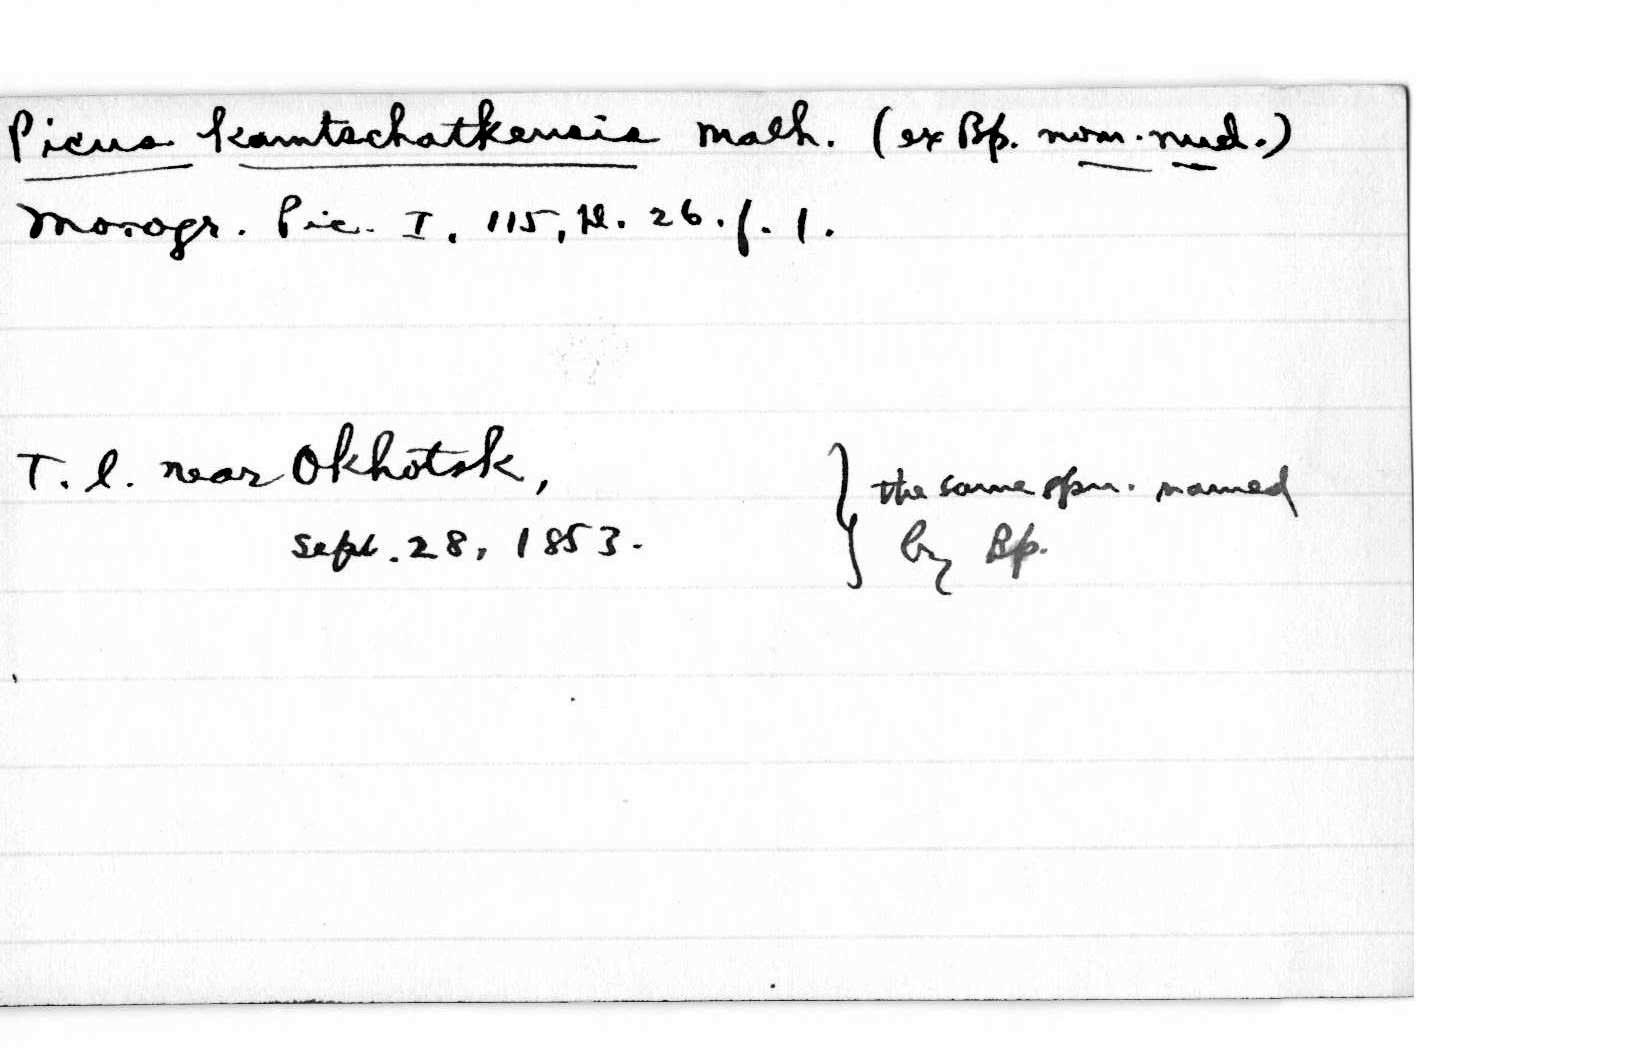 Picus kamtschatkensis Malh. (ex Bp. nom. nud.)
Monogr. Pic. I, 115, pl. 26. f. 1.
T. l. near Okhotsk,
Sept. 28, 1853.
} the same spm. named
by Bp.